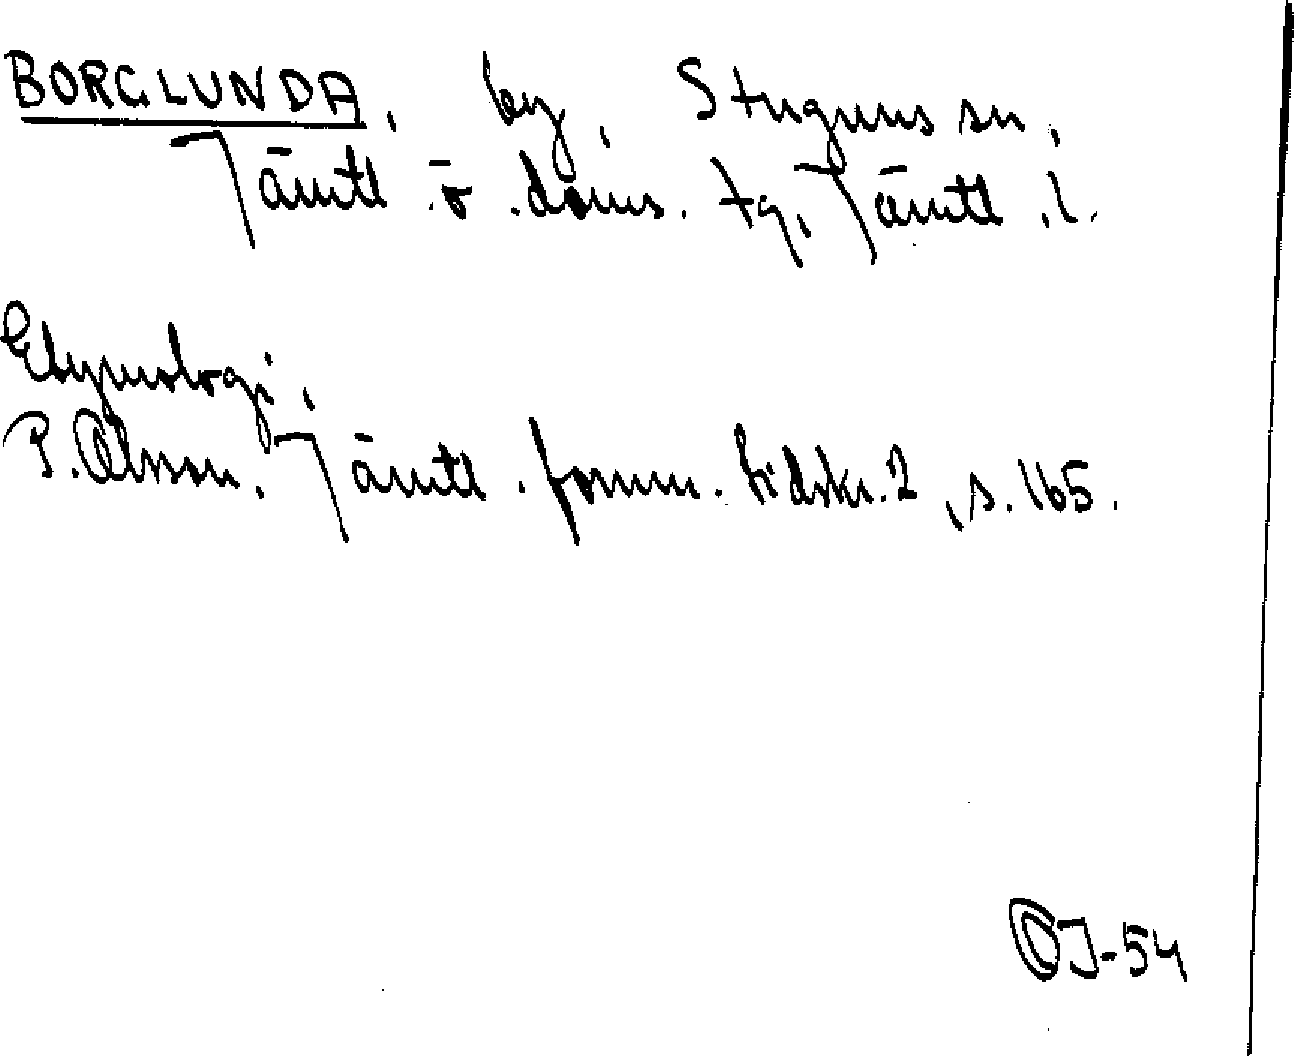 BORGLUNDA, by, Stuguns sn,
Jämtl. ö. doms. tg, Jämtl. l.
Etymologi,
P. Olsson, Jämtl. fornm. tidskr. 2, s. 165.
OJ-54